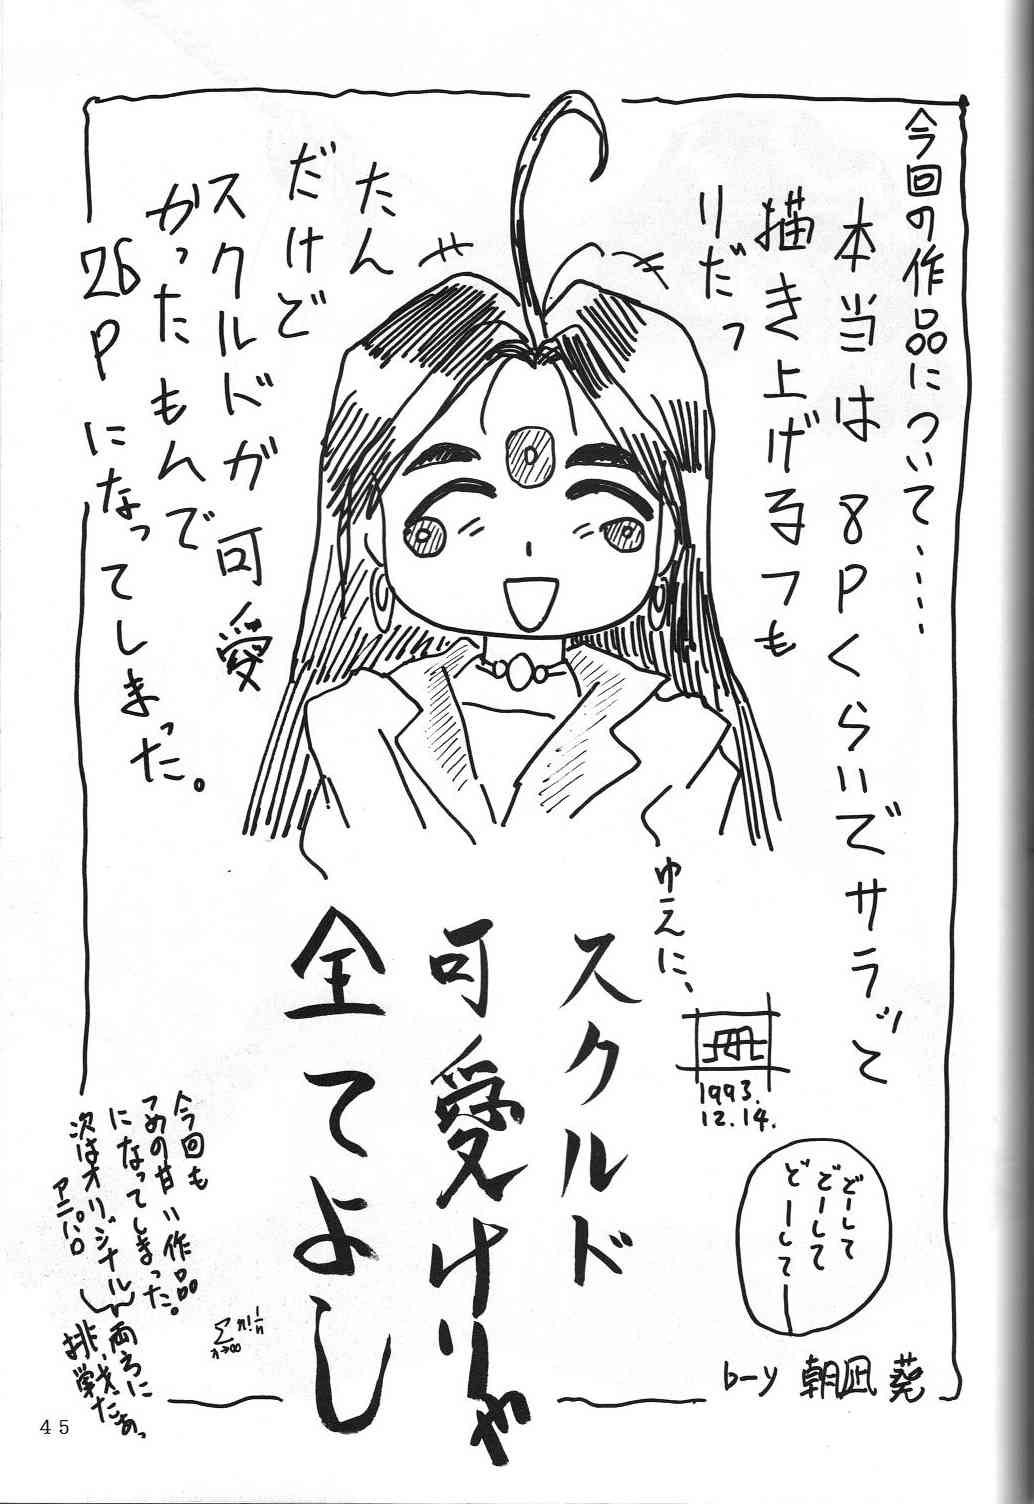 今回の作品について‥‥‥
本当は8Pくらいでサラッと
描き上げるつも
りだっ
たん
だけど
スクルドが可愛
かったもんで
26Pになってしまった。
ゆえに、
スクルド
可愛けりゃ
全てよし
1993.
12.14.
どーして
どーして
どーしてー
by 朝凪 葵
今回も
つめの甘い作品
になってしまった。
次はオリジナル
アニパロ
両方に
挑戦だぁっ
Σ n! 1/n
n→∞
45